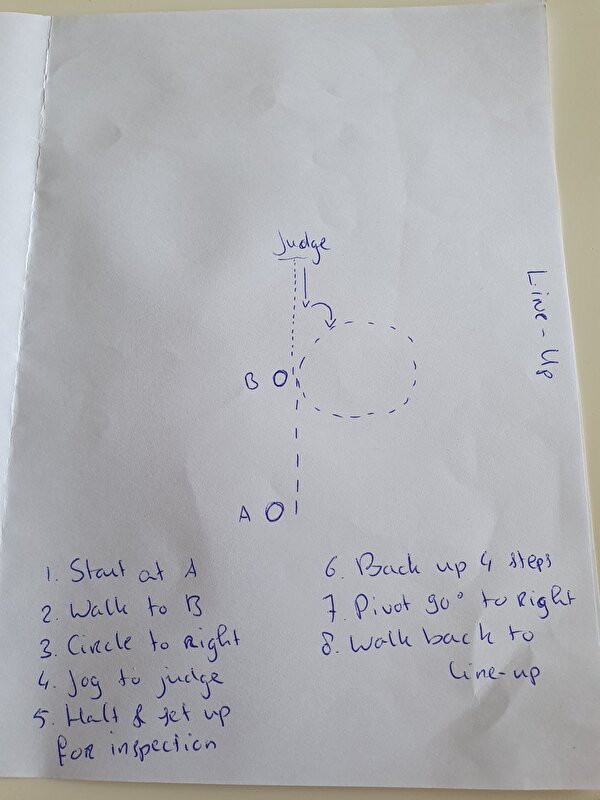 Judge
Line-Up
B
A
1. Start at A
2. Walk to B
3. Circle to right
4. Jog to judge
5. Halt & set up
for inspection
6. Back up 4 steps
7. Pivot 90° to right
8. Walk back to
line-up